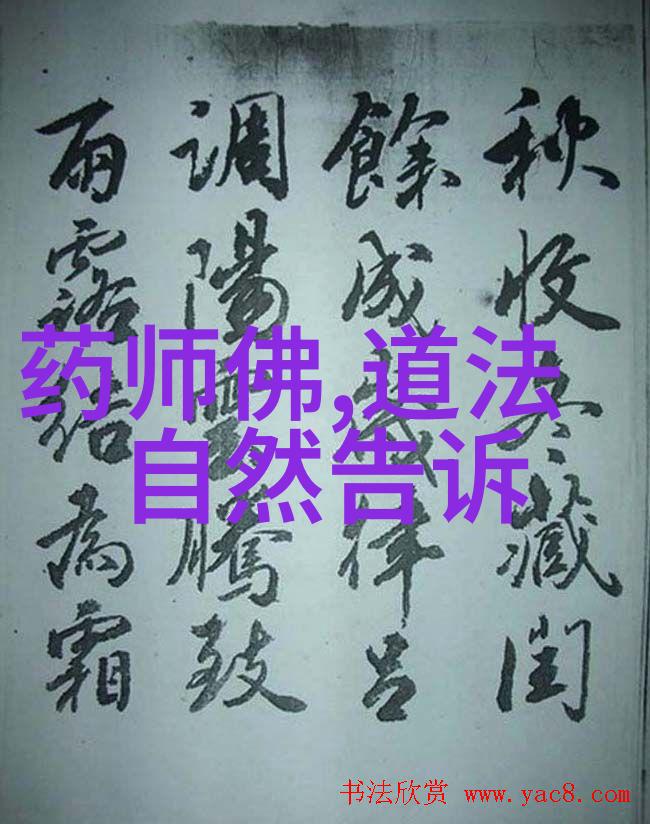 秋收冬藏閏
餘成歲律呂
調陽雲騰致
雨露結為霜
药师佛,道法
自然告诉
书法欣赏 www.yac8.com